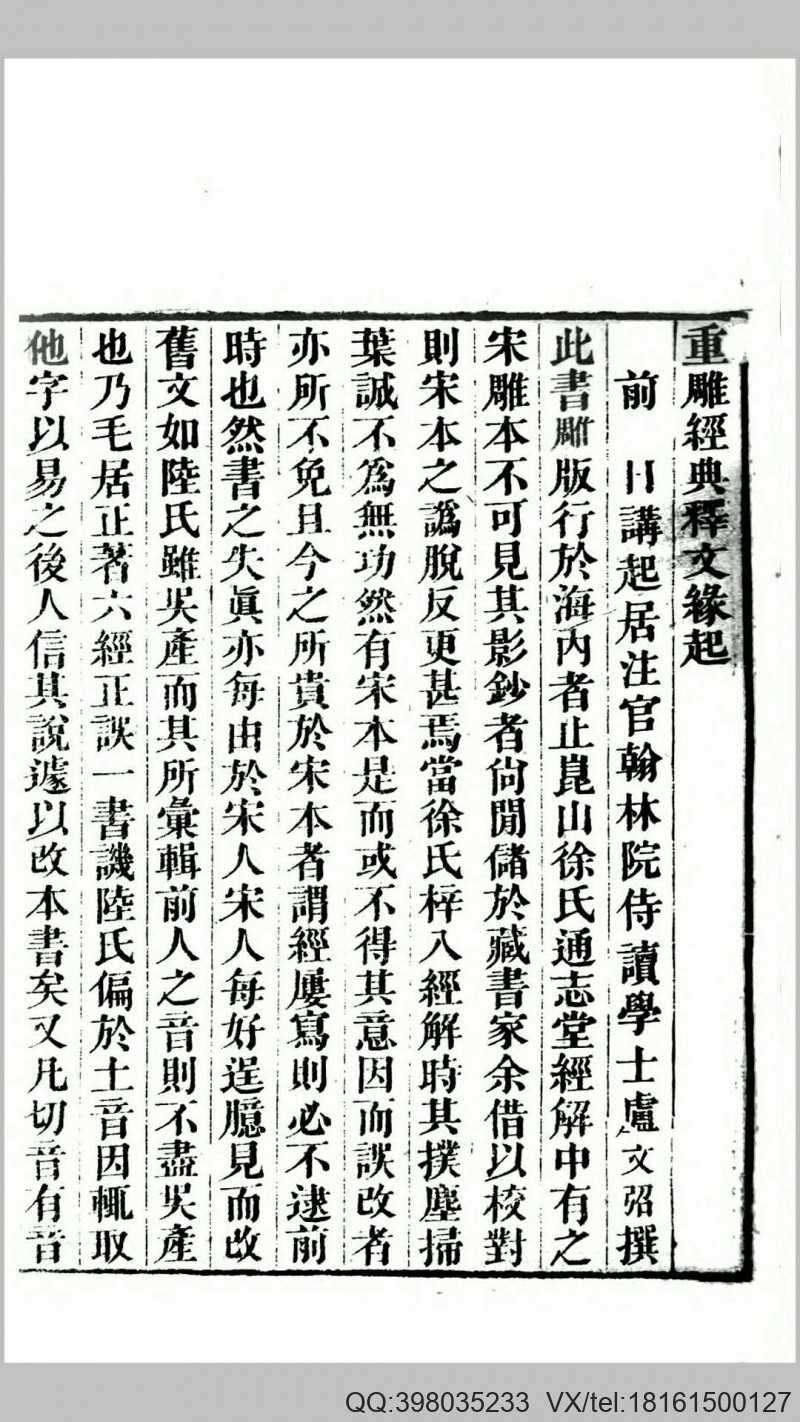 重雕經典釋文緣起
前日講起居注官翰林院侍讀學士盧文弨撰
此書雕版行於海內者止崑山徐氏通志堂經解中有之
宋雕本不可見其影鈔者尙閒儲於藏書家余借以校對
則宋本之譌脫反更甚焉當徐氏梓入經解時其撲塵掃
葉誠不爲無功然有宋本是而或不得其意因而誤改者
亦所不免且今之所貴於宋本者謂經屢寫則必不逮前
時也然書之失眞亦每由於宋人宋人每好逞臆見而改
舊文如陸氏雖吳產而其所彙輯前人之音則不盡吳產
也乃毛居正著六經正誤一書譏陸氏偏於土音因輒取
他字以易之後人信其說遽以改本書矣又凡切音有音
QQ:398035233 VX/tel:18161500127